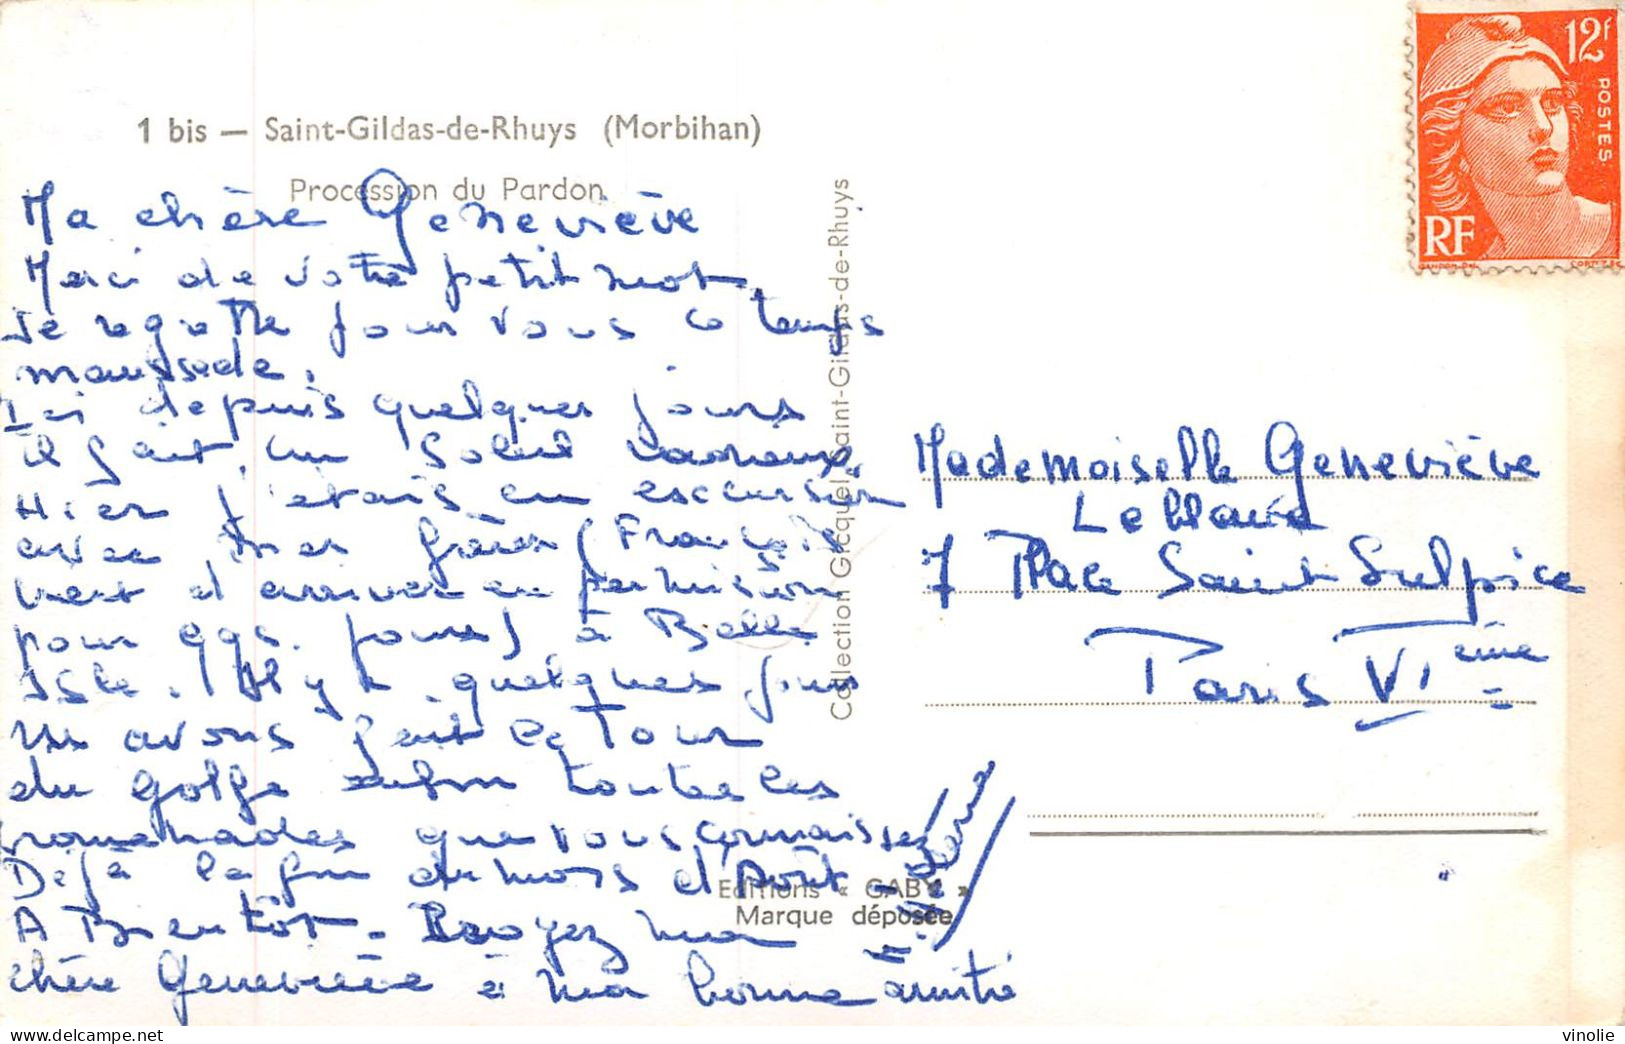 1 bis — Saint-Gildas-de-Rhuys (Morbihan)
Procession du Pardon
Ma chère Geneviève
Merci de votre petit mot,
Je regrette pour vous ce temps
maussade.
Ici depuis quelques jours
il fait un soleil radieux.
Hier j'étais en excursion
avec mes frères (François
vient d'arriver en permission
pour qqs. jours) à Belle
Isle. Il y a quelques jours
ns avons fait le tour
du golfe enfin toutes les
promenades que vous connaissez
Déjà la fin du mois d'Août -
A Bientôt - Croyez ma
chère Geneviève à ma bonne amitié
Collection Gicquel Saint-Gildas-de-Rhuys
Editions « GABY »
Marque déposée
12F
POSTES
RF
GANDON DEL
CORTOT SC
Mademoiselle Geneviève
7 Place Saint Sulpice
Paris VIème
vinolie